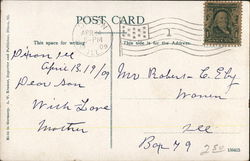 POST CARD
This space for writing
This side is for the Address.
ILL.
1
Dixon Ill
April 13, 19/09
Dear Son
With Love
Mother
Mr Robert C. Ely
Warren
Ill
Box 49
250